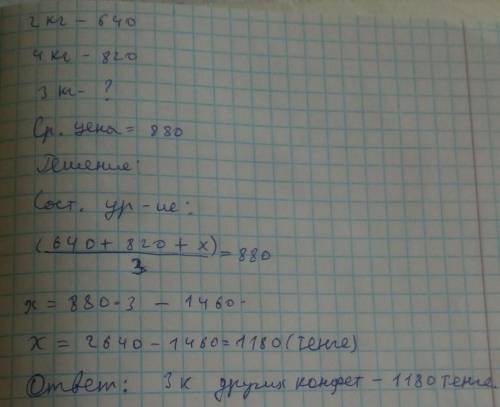 2 кг - 640
4 кг - 820
3 кг - ?
Ср. цена = 880
Решение:
Сост. ур-ие:
(640 + 820 + x)/3 = 880
x = 880·3 - 1460
x = 2640 - 1460 = 1180 (тенге)
Ответ: 3 к других конфет - 1180 тенге.